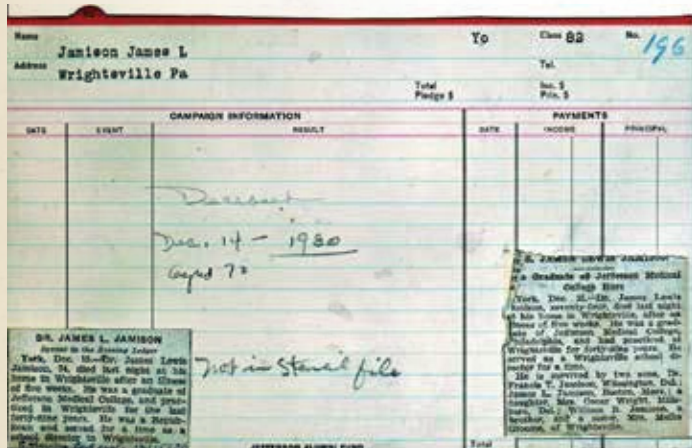 Name
Jamison James L
Yo
Class 82
No.
196
Address
Wrightsville Pa
Tel.
Total
Pledge $
Inc. $
Prin. $
CAMPAIGN INFORMATION
PAYMENTS
DATE
EVENT
RESULT
DATE
INCOME
PRINCIPAL
Deceased
Dec. 14 - 1930
aged 72
Not in Stencil file
DR. JAMES L. JAMISON
Special to the Evening Ledger
York, Dec. 15.—Dr. James Lewis
Jamison, 74, died last night at his
home in Wrightsville after an illness
of five weeks. He was a graduate of
Jefferson Medical College, and prac-
ticed in Wrightsville for the last
forty-nine years. He was a Repub-
lican and served for a time as a
school director in Wrightsville.
JAMES LEWIS JAMISON
a Graduate of Jefferson Medical
College Here
York, Dec. 15.—Dr. James Lewis
Jamison, seventy-four, died last night
at his home in Wrightsville, after an
illness of five weeks. He was a grad-
uate of Jefferson Medical College,
Philadelphia, and had practiced at
Wrightsville for forty-nine years. He
served as a Wrightsville school di-
rector for a time.
He is survived by two sons, Dr.
Francis T. Jamison, Wilmington, Del.;
James L. Jamison, Boston, Mass.; a
daughter, Mrs. Omar Wright,
Del.; William B. Jamison, a
brother, and a sister, Mrs. Mollie
of Wrightsville.
JEFFERSON ALUMNI FUND
Total